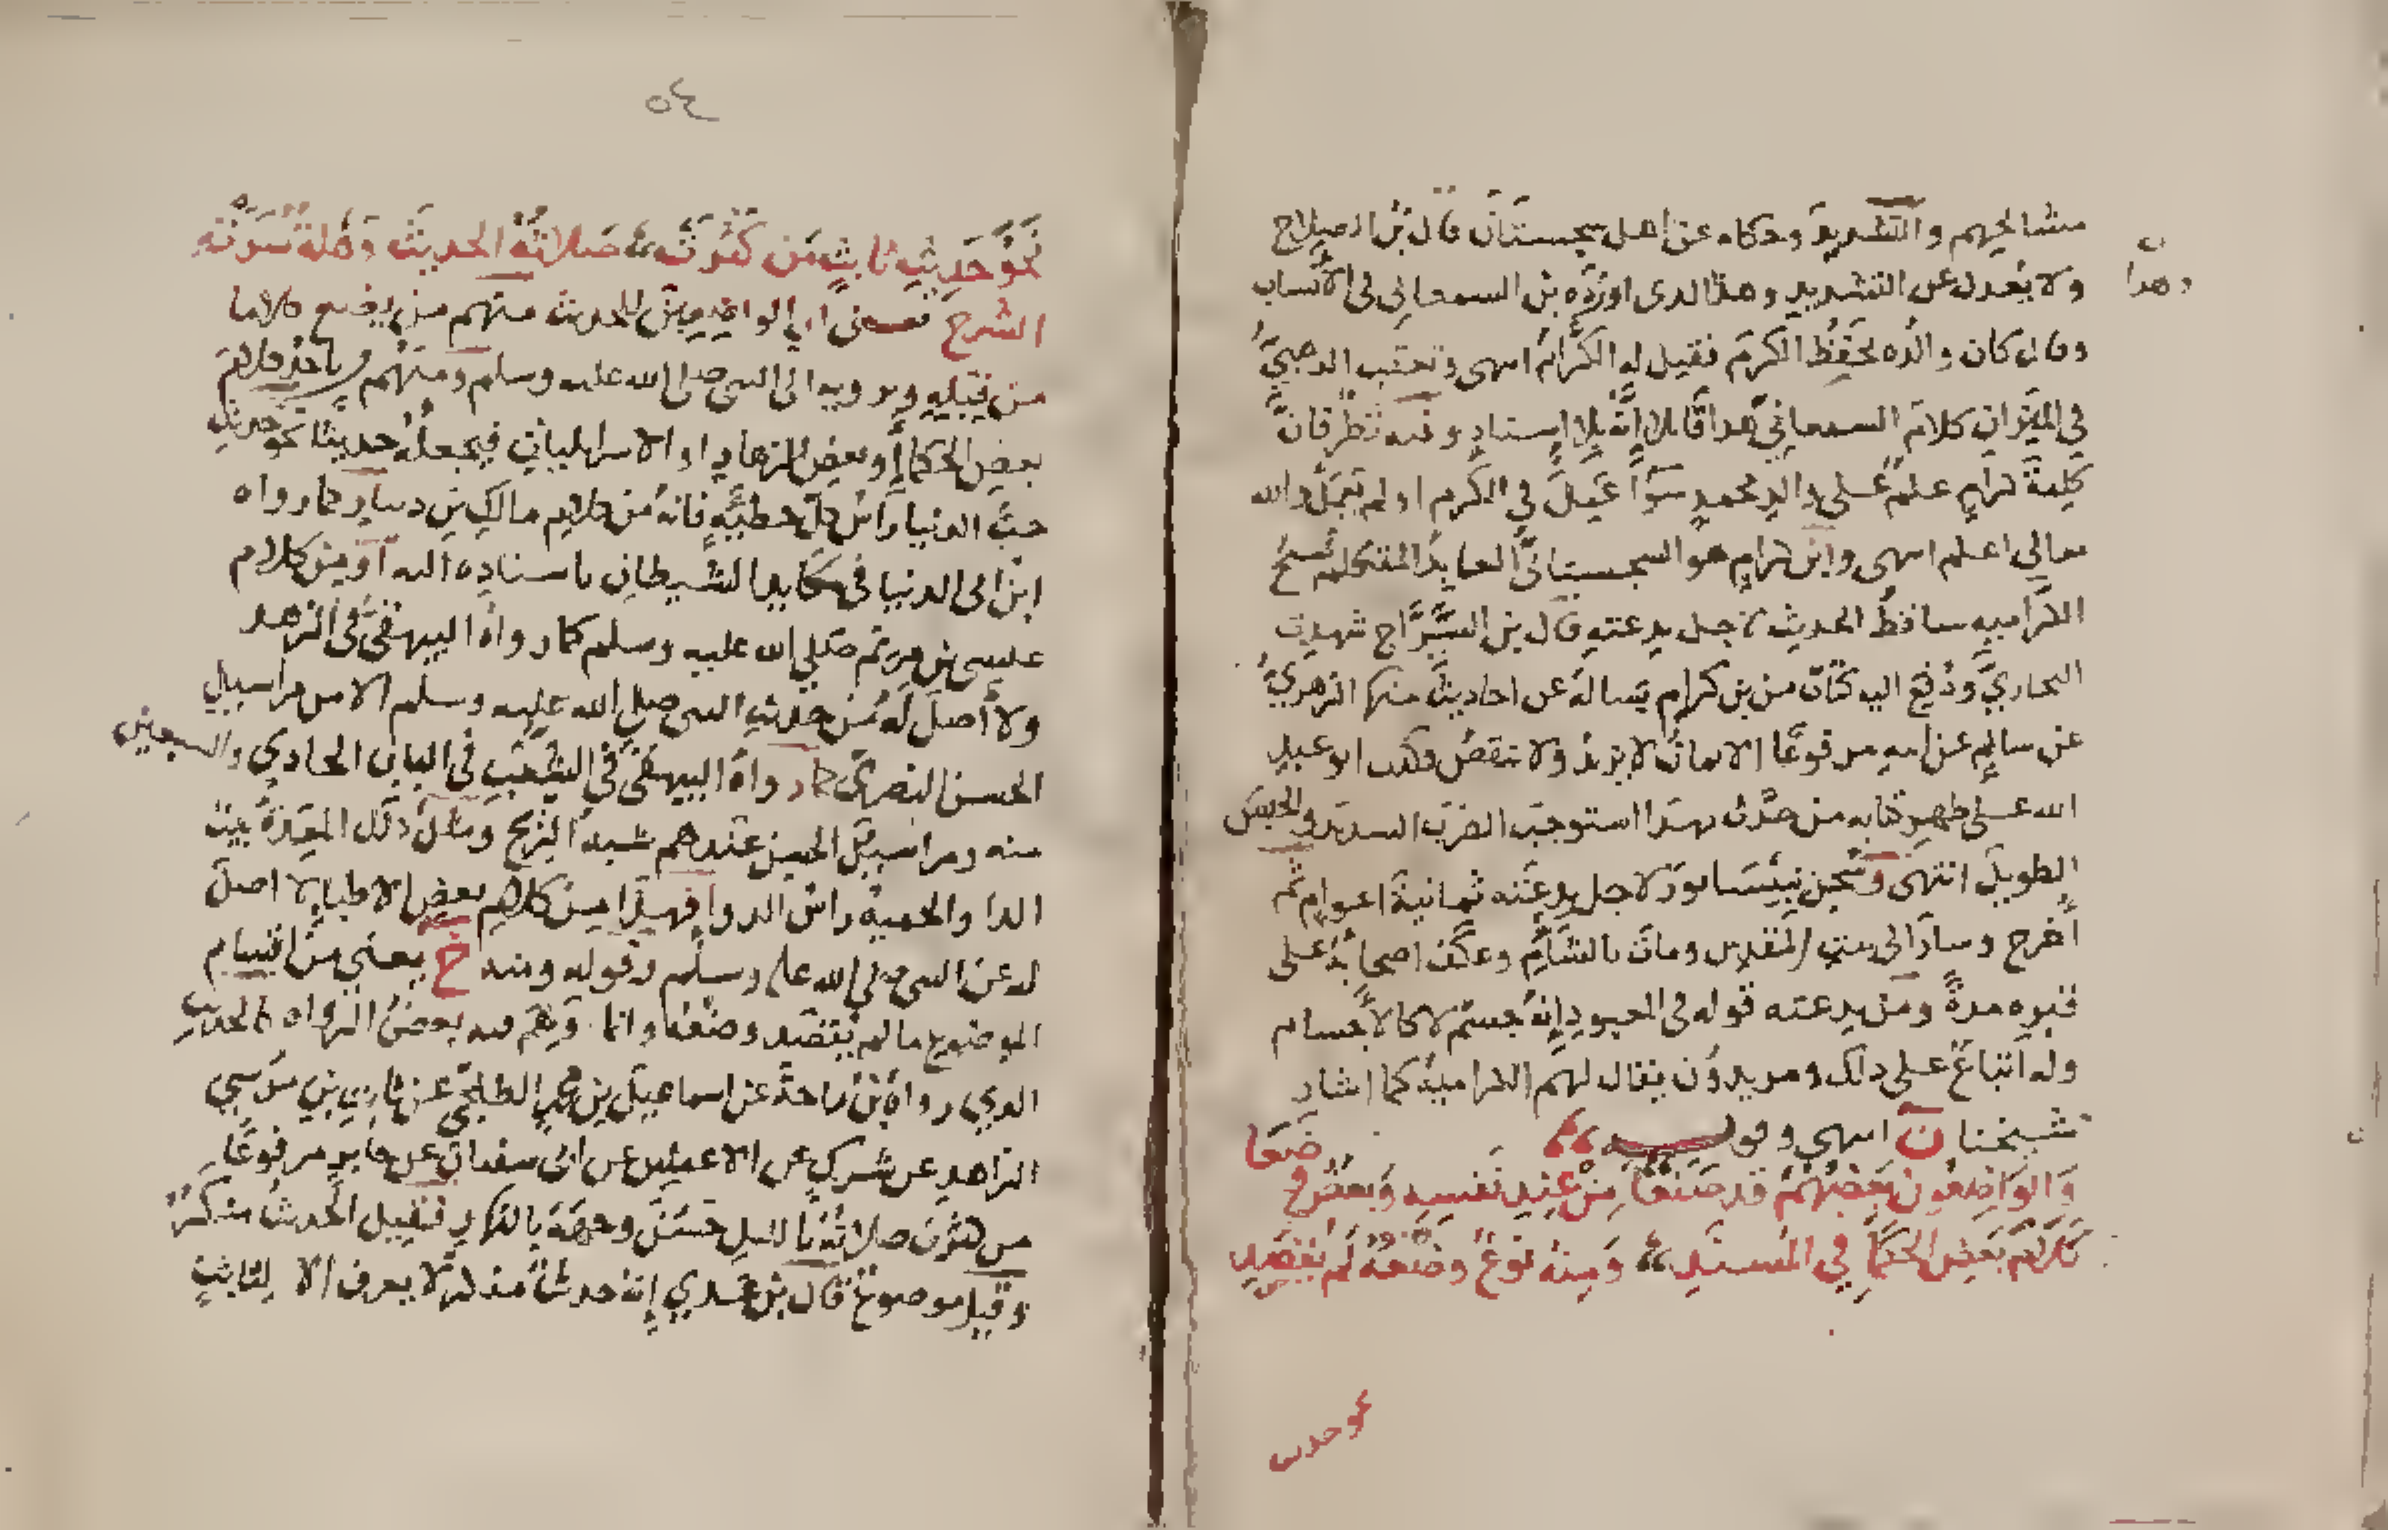 مشايخهم والتشديد وحكاه عن اهل سجستان قال بن الصلاح
ولا يعدل عن التشديد وهذا الدى اورده بن السمعانى فى الأنساب
وهدا
وقال كان والده يحفظ الكرم فقيل له الكرام انتهى وتعقب الدهبي
في الميزان كلام السمعاني هدا قايلا إنه بلا إسناد وفيه نظر فان
كلمة كرام علم على والد محمد سوا عمل في الكرم او لم يعمل والله
تعالى اعلم انتهى وابن كرام هو السجستاني العابد المتكلم شيخ
الكرامية ساقط الحديث لاجل بدعته قال بن السراج شهدت
البخاري ودفع اليه كتاب من بن كرام يساله عن احاديث منها الزهري
عن سالم عن ابيه مرفوعا الايمان لا يزيد ولا ينقص فكتب ابو عبد
الله على ظهر كتابه من حدث بهذا استوجب الضرب الشديد والحبس
الطويل انتهى وسجن بنيسابور لاجل بدعته ثمانية اعوام ثم
أخرج وسار الى بيت المقدس ومات بالشام وعكف اصحابه على
قبره مدة ومن بدعته قوله فى المعبود إنه جسم لا كالأجسام
وله اتباع على دلك ومريدون يقال لهم الكرامية كما اشار
شيخنا ن انتهى وقوله
والواضعون بعضهم قد صنعا من عند نفسه وبعض وضعا
كلام بعض الحكما في المسند ومنه نوع وضعه لم يقصد
نحو حديث
نحو حديث ثابت من كثرت صلاته الحديث وهلة سرت
الشرح فمعنى ان الواضعين الحديث منهم من يضع كلاما
من قبله ويرويه الى النبى صلى الله عليه وسلم ومنهم من ياخذ كلام
بعض الحكما أو بعض الزهاد او الاسرايليات فيجعله حديثا نحو حديث
حب الدنيا رأس كل خطيئة فانه من كلام مالك بن دينار كما رواه
ابن ابى الدنيا فى مكايد الشيطان باسناده اليه أو من كلام
عيسى بن مريم صلى الله عليه وسلم كما رواه البيهقى فى الزهد
ولا أصل له من حديث النبى صلى الله عليه وسلم الا من مراسيل
الحسن البصري كما رواه البيهقى فى الشعب فى الباب الحادي والسبعين
منه ومراسيل الحسن عندهم شبه الريح ومثل دلك المعدة بيت
الدا والحمية راس الدوا فهذا من كلام بعض الاطبا لا اصل
له عن النبى صلى الله عليه وسلم وقوله ومنه خ يعنى من اقسام
الموضوع ما لم يقصد وضعه وانما وهم فيه بعض الرواه كالحديث
الدي رواه بن ماجة عن اسماعيل بن محمد الطلحى عن ثابت بن موسي
الزاهد عن شريك عن الاعمش عن ابى سفيان عن جابر مرفوعا
من كثرت صلاته بالليل حسن وجهه بالنهار فقيل الحديث منكر
وقيل موضوع قال بن عدي إنه حديث منكر لا يعرف الا لثابت